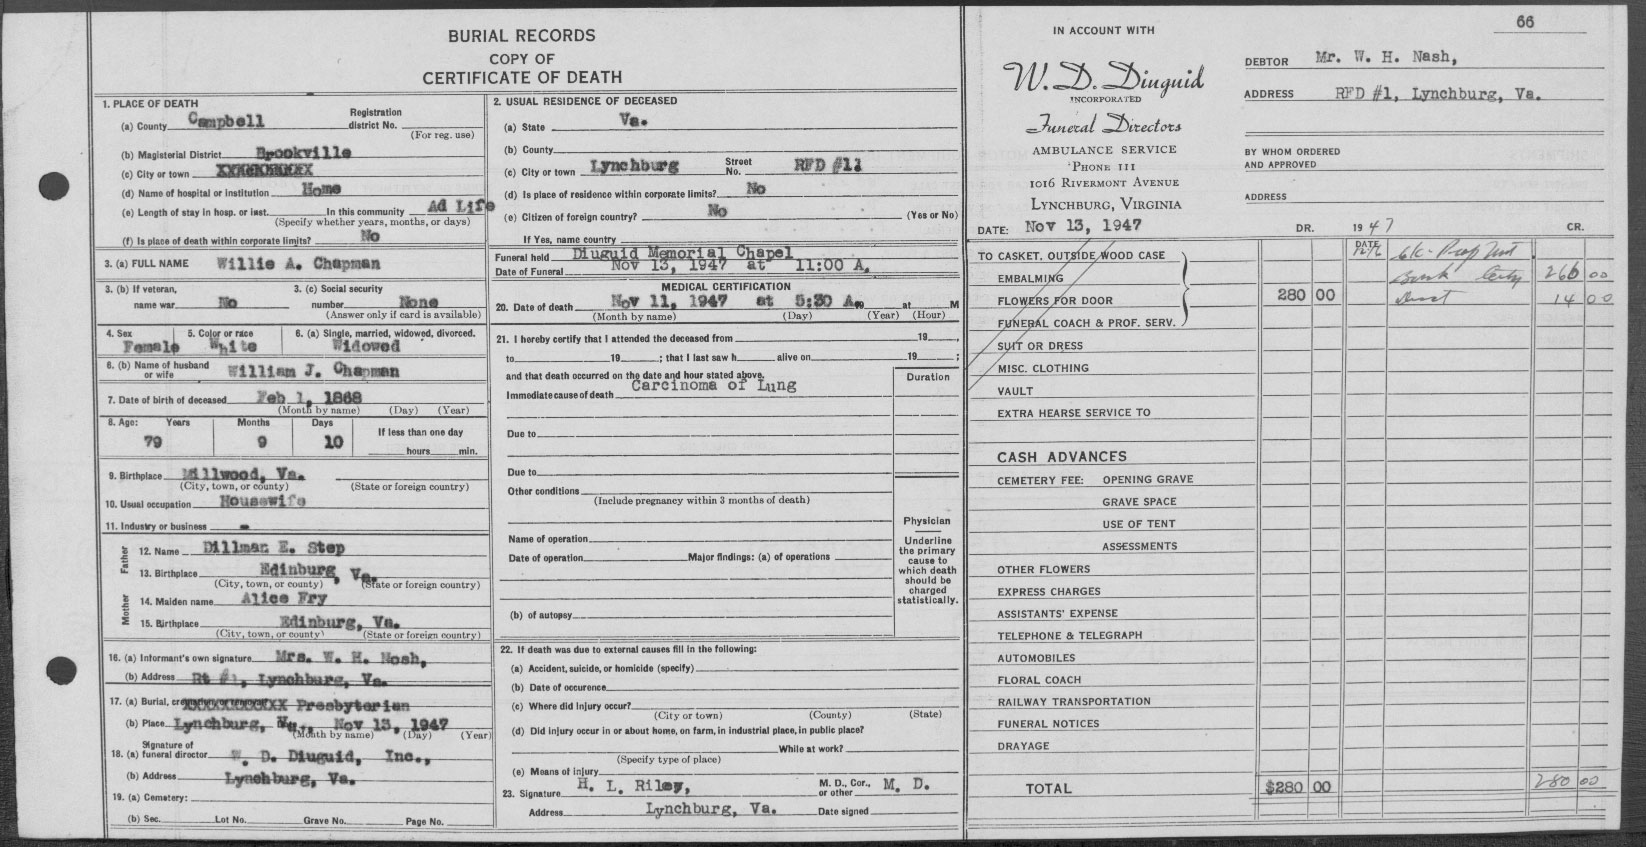 BURIAL RECORDS
COPY OF
CERTIFICATE OF DEATH
1. PLACE OF DEATH
(a) County Campbell Registration district No.
(For reg. use)
(b) Magisterial District Brookville
(c) City or town
(d) Name of hospital or institution Home
(e) Length of stay in hosp. or inst. In this community Ad Life
(Specify whether years, months, or days)
(f) Is place of death within corporate limits? No
3. (a) FULL NAME Willie A. Chapman
3. (b) If veteran, name war No 3. (c) Social security number None
(Answer only if card is available)
4. Sex Female 5. Color or race White 6. (a) Single, married, widowed, divorced. Widowed
6. (b) Name of husband or wife William J. Chapman
7. Date of birth of deceased Feb 1, 1868
(Month by name) (Day) (Year)
8. Age: Years Months Days If less than one day
79 9 10 hours min.
9. Birthplace Millwood, Va.
(City, town, or county) (State or foreign country)
10. Usual occupation Housewife
11. Industry or business -
Father
12. Name Dillman E. Step
13. Birthplace Edinburg, Va.
(City, town, or county) (State or foreign country)
Mother
14. Maiden name Alice Fry
15. Birthplace Edinburg, Va.
(City, town, or county) (State or foreign country)
16. (a) Informant's own signature Mrs. W. H. Nash,
(b) Address Rt #1, Lynchburg, Va.
17. (a) Burial, cremation or removal? Presbyterian
(b) Place Lynchburg, Va., Nov 13, 1947
(Month by name) (Day) (Year)
18. (a) Signature of funeral director W. D. Diuguid, Inc.,
(b) Address Lynchburg, Va.
19. (a) Cemetery:
(b) Sec. Lot No. Grave No. Page No.
2. USUAL RESIDENCE OF DECEASED
(a) State Va.
(b) County
(c) City or town Lynchburg Street No. RFD #1
(d) Is place of residence within corporate limits? No
(e) Citizen of foreign country? No (Yes or No)
If Yes, name country
Funeral held Diuguid Memorial Chapel
Date of Funeral Nov 13, 1947 at 11:00 A.
MEDICAL CERTIFICATION
20. Date of death Nov 11, 1947 at 5:30 A. at M
(Month by name) (Day) (Year) (Hour)
21. I hereby certify that I attended the deceased from 19 ,
to 19 ; that I last saw h alive on 19 ;
and that death occurred on the date and hour stated above.
Duration
Immediate cause of death Carcinoma of Lung
Due to
Due to
Other conditions
(Include pregnancy within 3 months of death)
Name of operation
Date of operation Major findings: (a) of operations
(b) of autopsy
Physician
Underline
the primary
cause to
which death
should be
charged
statistically.
22. If death was due to external causes fill in the following:
(a) Accident, suicide, or homicide (specify)
(b) Date of occurence
(c) Where did injury occur?
(City or town) (County) (State)
(d) Did injury occur in or about home, on farm, in industrial place, in public place?
While at work?
(Specify type of place)
(e) Means of injury
23. Signature H. L. Riley, M. D., Cor., or other M. D.
Address Lynchburg, Va. Date signed
66
IN ACCOUNT WITH
W. D. Diuguid
INCORPORATED
Funeral Directors
AMBULANCE SERVICE
'PHONE 111
1016 RIVERMONT AVENUE
LYNCHBURG, VIRGINIA
DEBTOR Mr. W. H. Nash,
ADDRESS RFD #1, Lynchburg, Va.
BY WHOM ORDERED
AND APPROVED
ADDRESS
DATE: Nov 13, 1947 DR. 1947 CR.
DATE
TO CASKET, OUTSIDE WOOD CASE 12/6
EMBALMING 266 00
FLOWERS FOR DOOR 280 00 14 00
FUNERAL COACH & PROF. SERV.
SUIT OR DRESS
MISC. CLOTHING
VAULT
EXTRA HEARSE SERVICE TO
CASH ADVANCES
CEMETERY FEE: OPENING GRAVE
GRAVE SPACE
USE OF TENT
ASSESSMENTS
OTHER FLOWERS
EXPRESS CHARGES
ASSISTANTS' EXPENSE
TELEPHONE & TELEGRAPH
AUTOMOBILES
FLORAL COACH
RAILWAY TRANSPORTATION
FUNERAL NOTICES
DRAYAGE
TOTAL $280 00 280 00